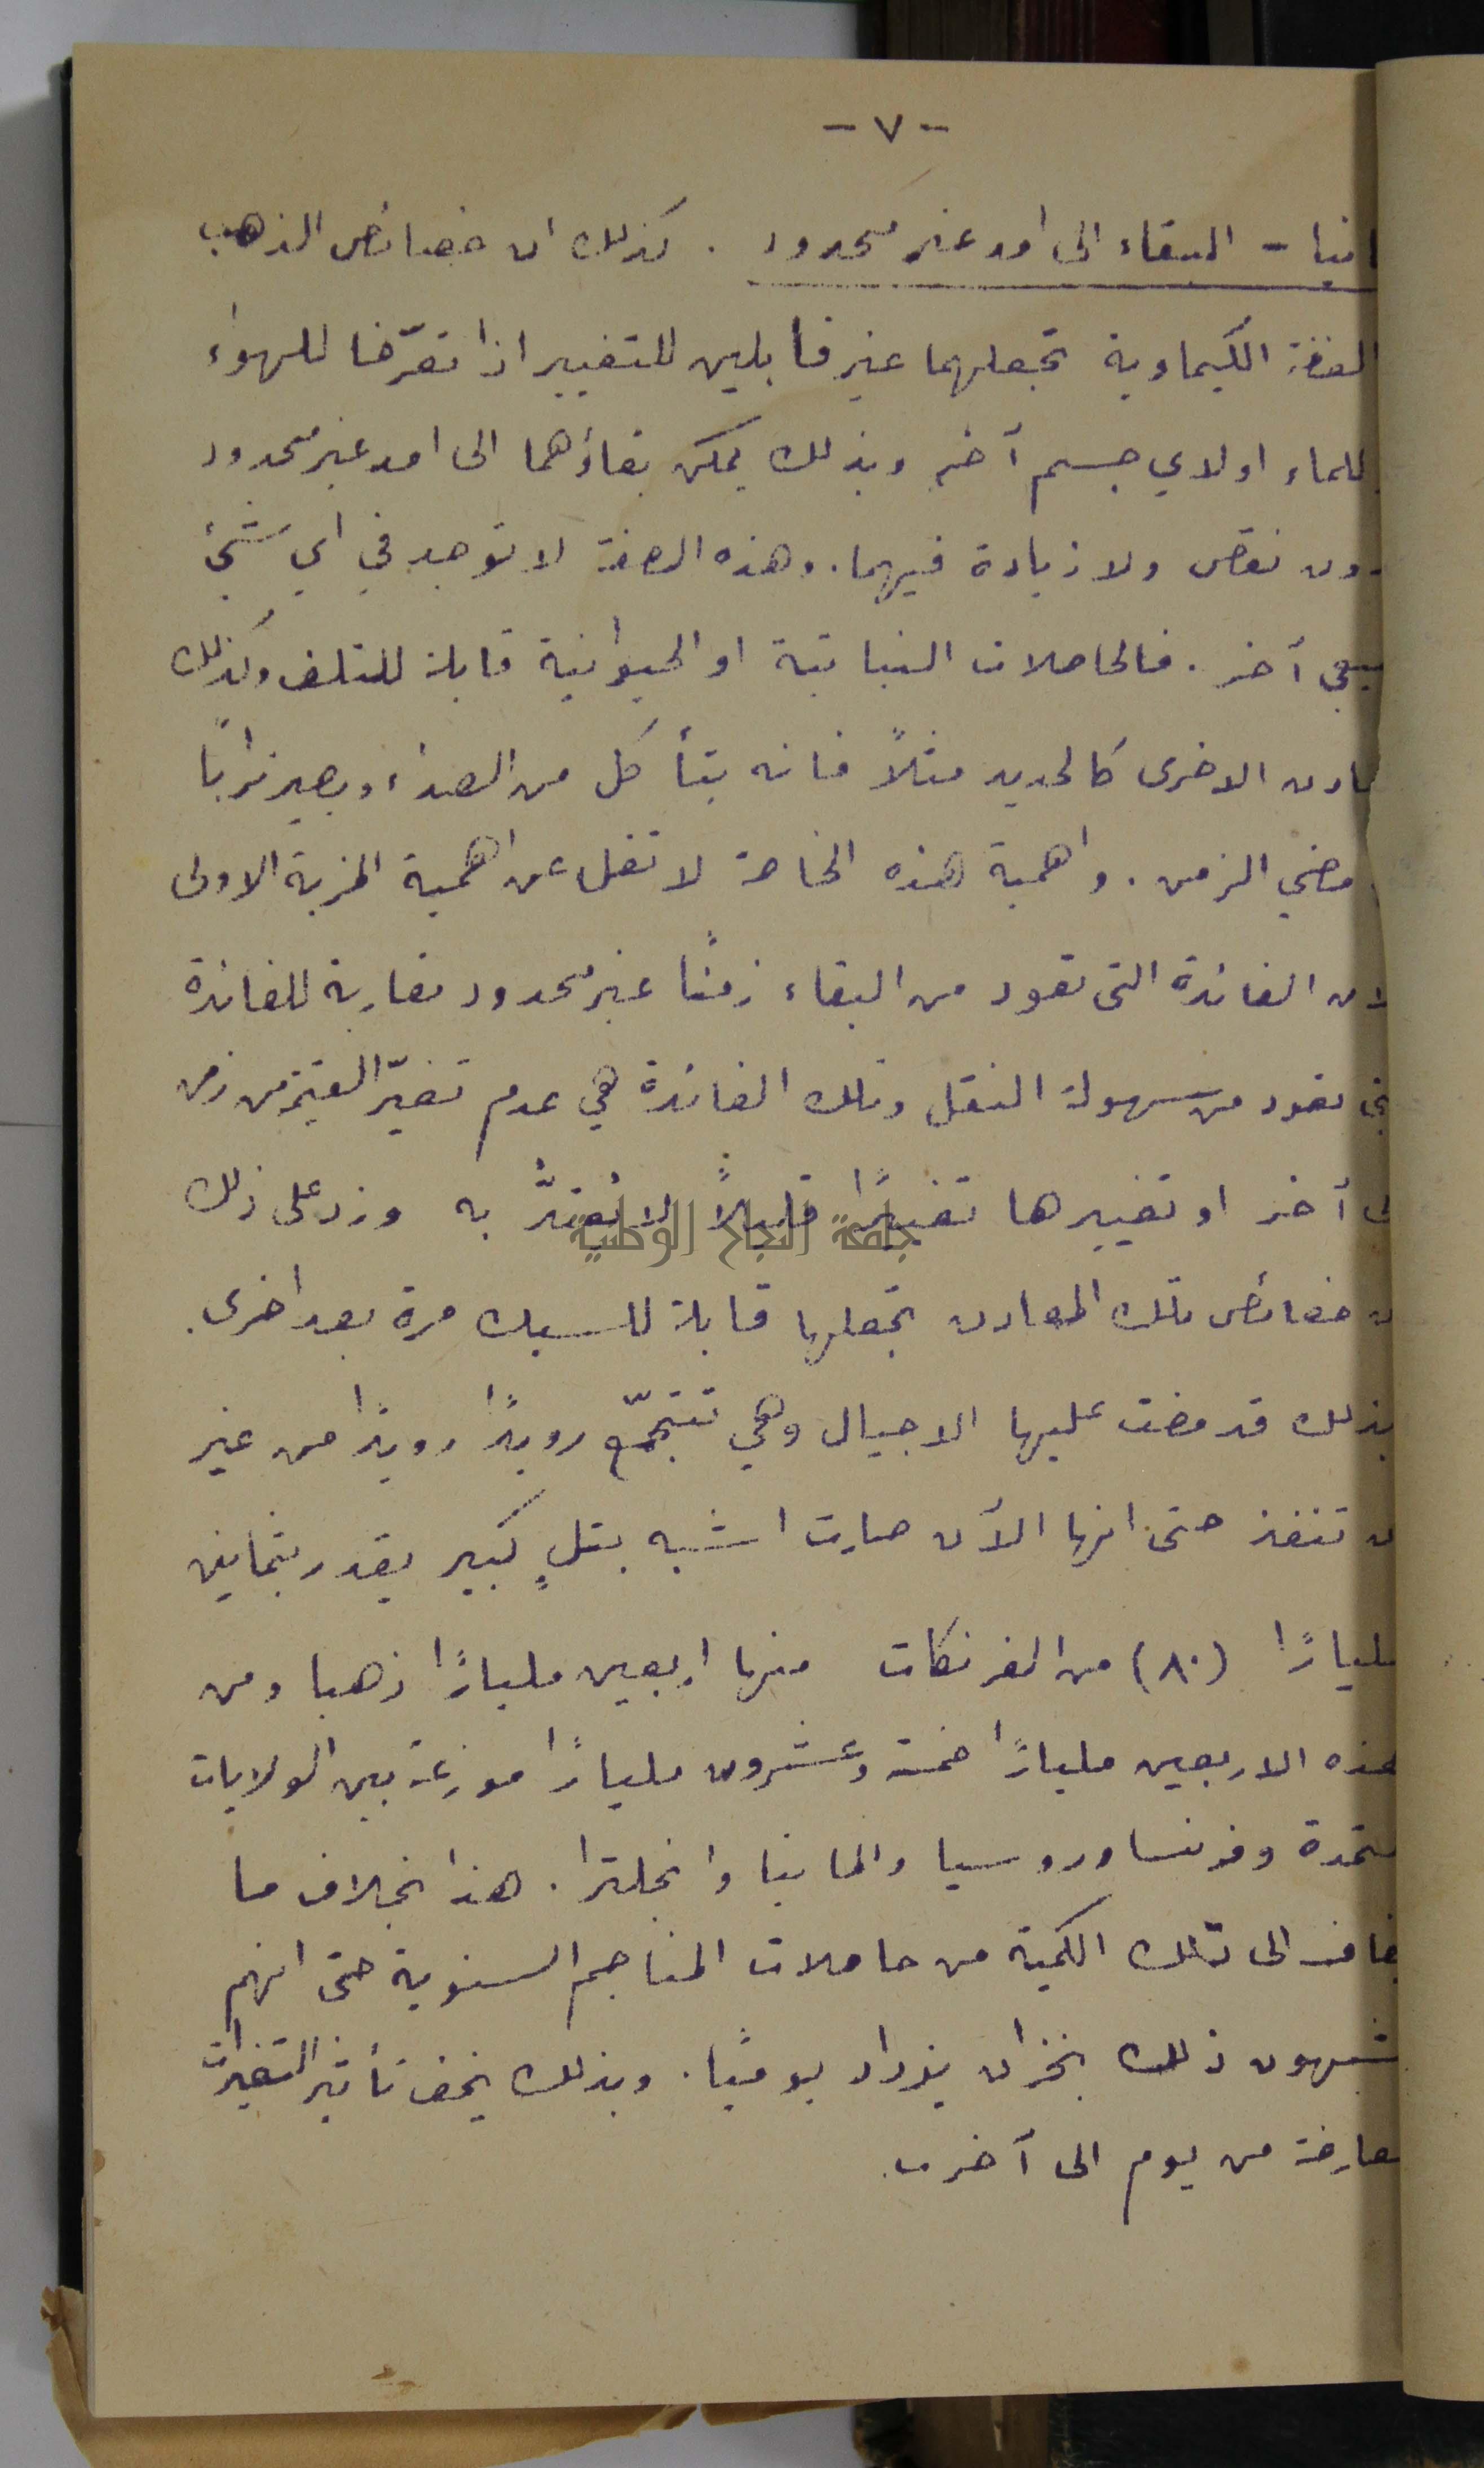 -٧-
انيا - البقاء الى امد غير محدود . كذلك ان خصائص الذهب
الفضة الكيماوية تجعلهما غير قابلين للتغيير اذا تعرّضا للهواء
للماء او لاي جسم آخر وبذلك يمكن بقاؤهما الى امد غير محدود
دون نقص ولا زيادة فيهما . وهذه الصفة لا توجد في اي شئ
بيعي آخر . فالحاصلات النباتية او الحيوانية قابلة للتلف وكذلك
عادن الاخرى كالحديد مثلاً فانه يتأكل من الصداء ويصير تراباً
مضي الزمن . واهمية هذه الخاصة لا تقل عن اهمية المزية الاولى
لان الفائدة التى تعود من البقاء زمنًا غير محدود مقاربة للفائدة
تي تعود من سهولة النقل وتلك الفائدة هي عدم تغيّر القيمة من زمن
لى آخر او تغييرها تغييرًا قليلاً لا يُعتدُّ به وزد على ذلك
جامعة النجاح الوطنية
ن خصائص تلك المعادن تجعلها قابلة للسبك مرة بعد اخرى .
بذلك قد مضت عليها الاجيال وهي تتجمّع رويدًا رويدًا من غير
ن تنفذ حتى انها الآن صارت اشبه بتلٍ كبير يقدر بثمانين
مليارًا (٨٠) من الفرنكات منها اربعين مليارًا ذهبا ومن
هذه الاربعين مليارًا خمسة وعشرون مليارًا موزعة بين الولايات
متحدة وفرنسا وروسيا والمانيا وانجلترا . هذا بخلاف ما
يضاف الى تلك الكمية من حاصلات المناجم السنوية حتى انهم
شبهون ذلك بخزان يزداد يوميًا . وبذلك يخف تأثير التغيرات
لعارضة من يوم الى آخر .